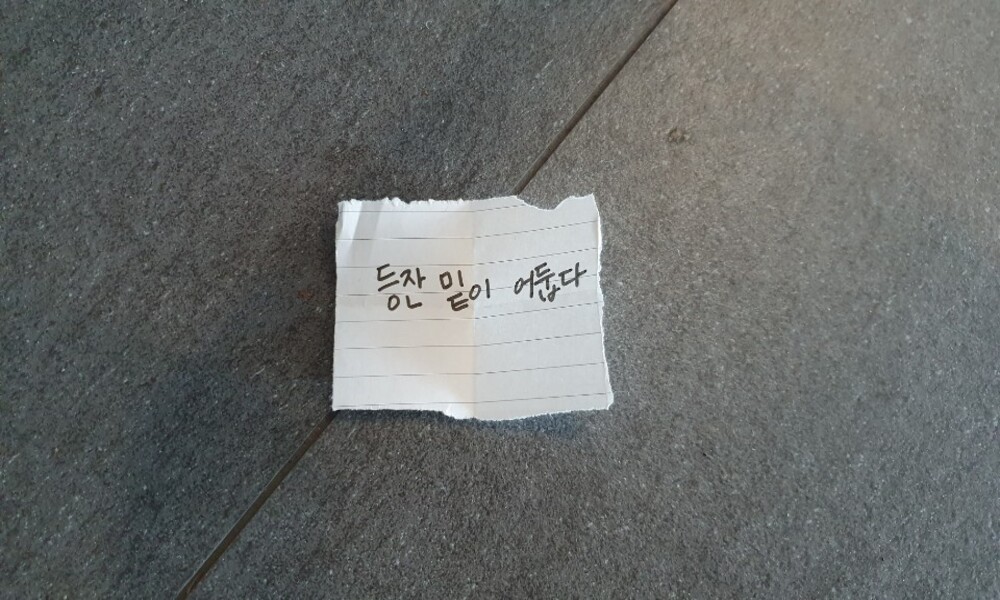 등잔 밑이 어둡다